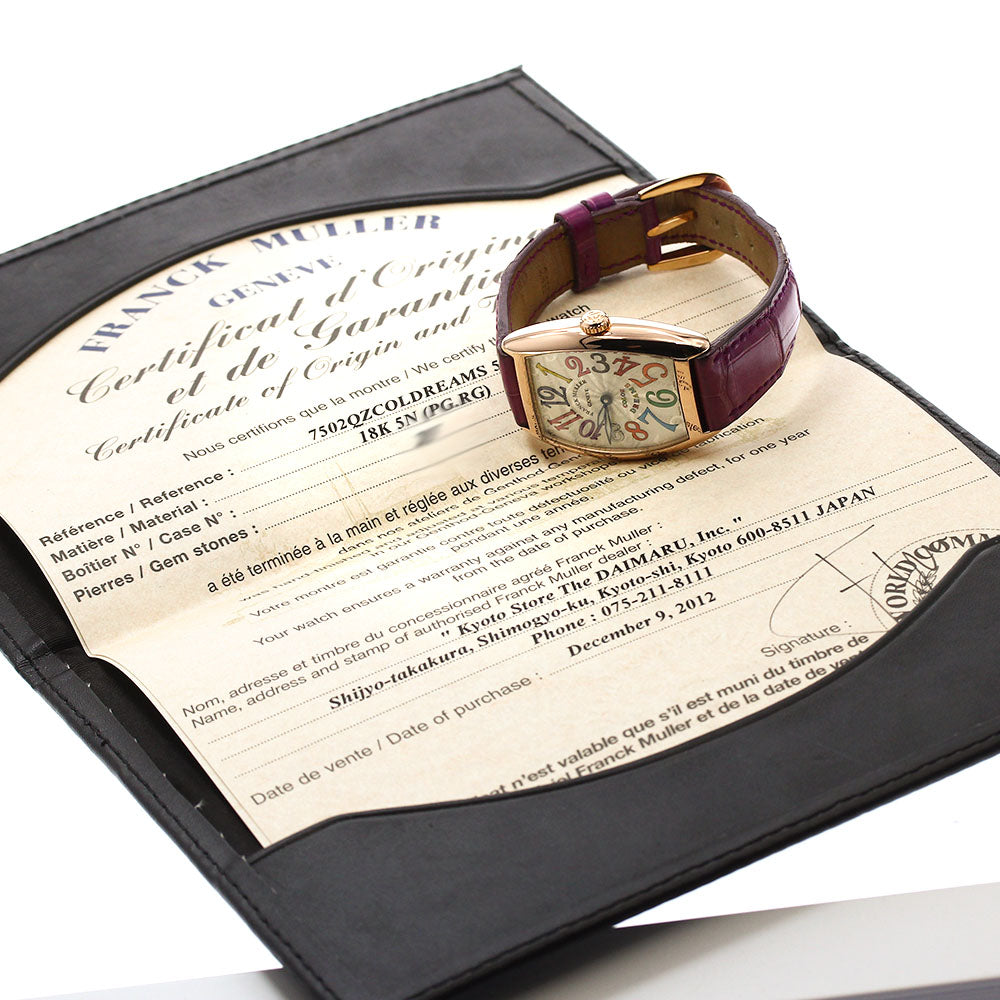 FRANCK MULLER
GENEVE
Certificat d'Origine
et de Garantie
Certificate of Origin and
Nous certifions que la montre / We certify watch
Référence / Reference : 7502QZCOLDREAMS 5
Matière / Material : 18K 5N (PG.RG)
Boîtier N° / Case N° :
Pierres / Gem stones :
a été terminée à la main et réglée aux diverses
dans nos ateliers de Genthod
Geneva workshops
Votre montre est garantie contre toute défectuosité ou vice de fabrication
pendant une année.
Your watch ensures a warranty against any manufacturing defect, for one year
from the date of purchase.
Nom, adresse et timbre du concessionnaire agréé Franck Muller :
Name, address and stamp of authorised Franck Muller dealer :
" Kyoto Store The DAIMARU, Inc. "
Shijyo-takakura, Shimogyo-ku, Kyoto-shi, Kyoto 600-8511 JAPAN
Phone : 075-211-8111
Date de vente / Date of purchase : December 9, 2012
Signature :
n'est valable que s'il est muni du timbre de
Franck Muller et de la date de
FRANCK MULLER
GENEVE
COLOR
DREAMS
1 2 3 4 5 6 7 8 9 10 11 12